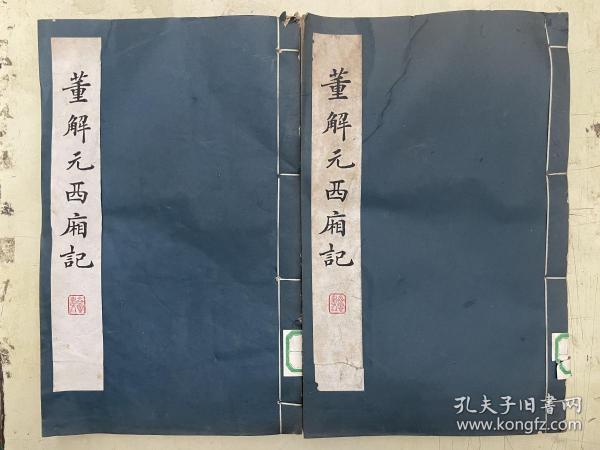 董解元西廂記
董解元西廂記
孔夫子旧书网
www.kongfz.com